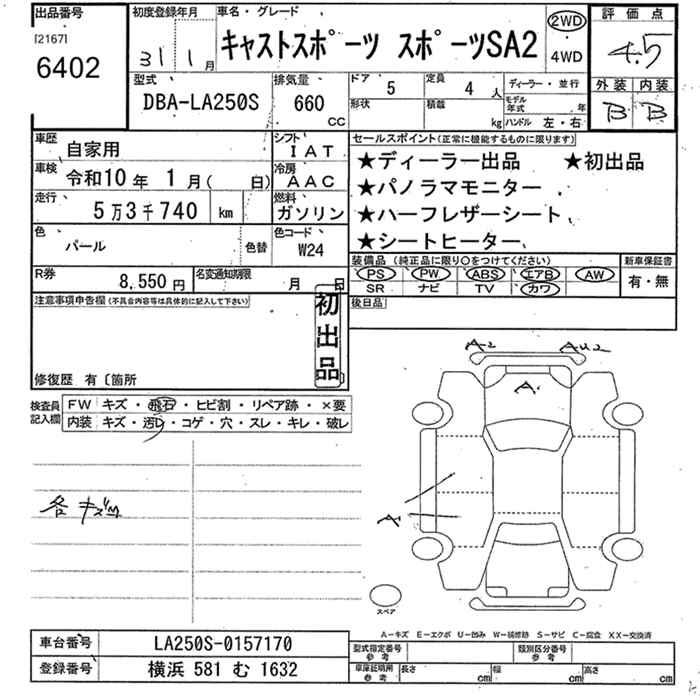 出品番号
[2167]
6402
初度登録年月
31 1月
車名・グレード
キャストスポーツ スポーツSA2
2WD
4WD
評価点
4.5
外装 内装
B B
型式
DBA-LA250S
排気量
660
CC
ドア 5
定員 4 人
形状
積載 kg
ディーラー・並行
モデル年式 年
ハンドル 左・右
車歴 自家用
シフト IAT
車検 令和10年 1月( 日)
冷房 AAC
走行 5万3千740 km
燃料 ガソリン
色 パール 色替
色コード W24
R券 8,550円
名変通知期限 月 日
セールスポイント(正常に機能するものに限ります)
★ディーラー出品 ★初出品
★パノラマモニター
★ハーフレザーシート
★シートヒーター
装備品 (純正品に限り○をつけてください)
新車保証書
PS PW ABS エアB AW
SR ナビ TV カワ
有・無
後日品
注意事項申告欄(不具合内容等は具体的に記入して下さい)
初出品
修復歴 有〔箇所 〕
検査員記入欄
FW キズ・飛石・ヒビ割・リペア跡・×要
内装 キズ・汚レ・コゲ・穴・スレ・キレ・破レ
各キズ
A2 AU2
A
A
スペア
A−キズ E−エクボ U−凹み W−補修跡 S−サビ C−腐食 XX−交換済
車台番号 LA250S-0157170
登録番号 横浜 581 む 1632
型式指定番号 参考
類別区分番号 参考
車庫証明用 参考
長さ cm 幅 cm 高さ cm